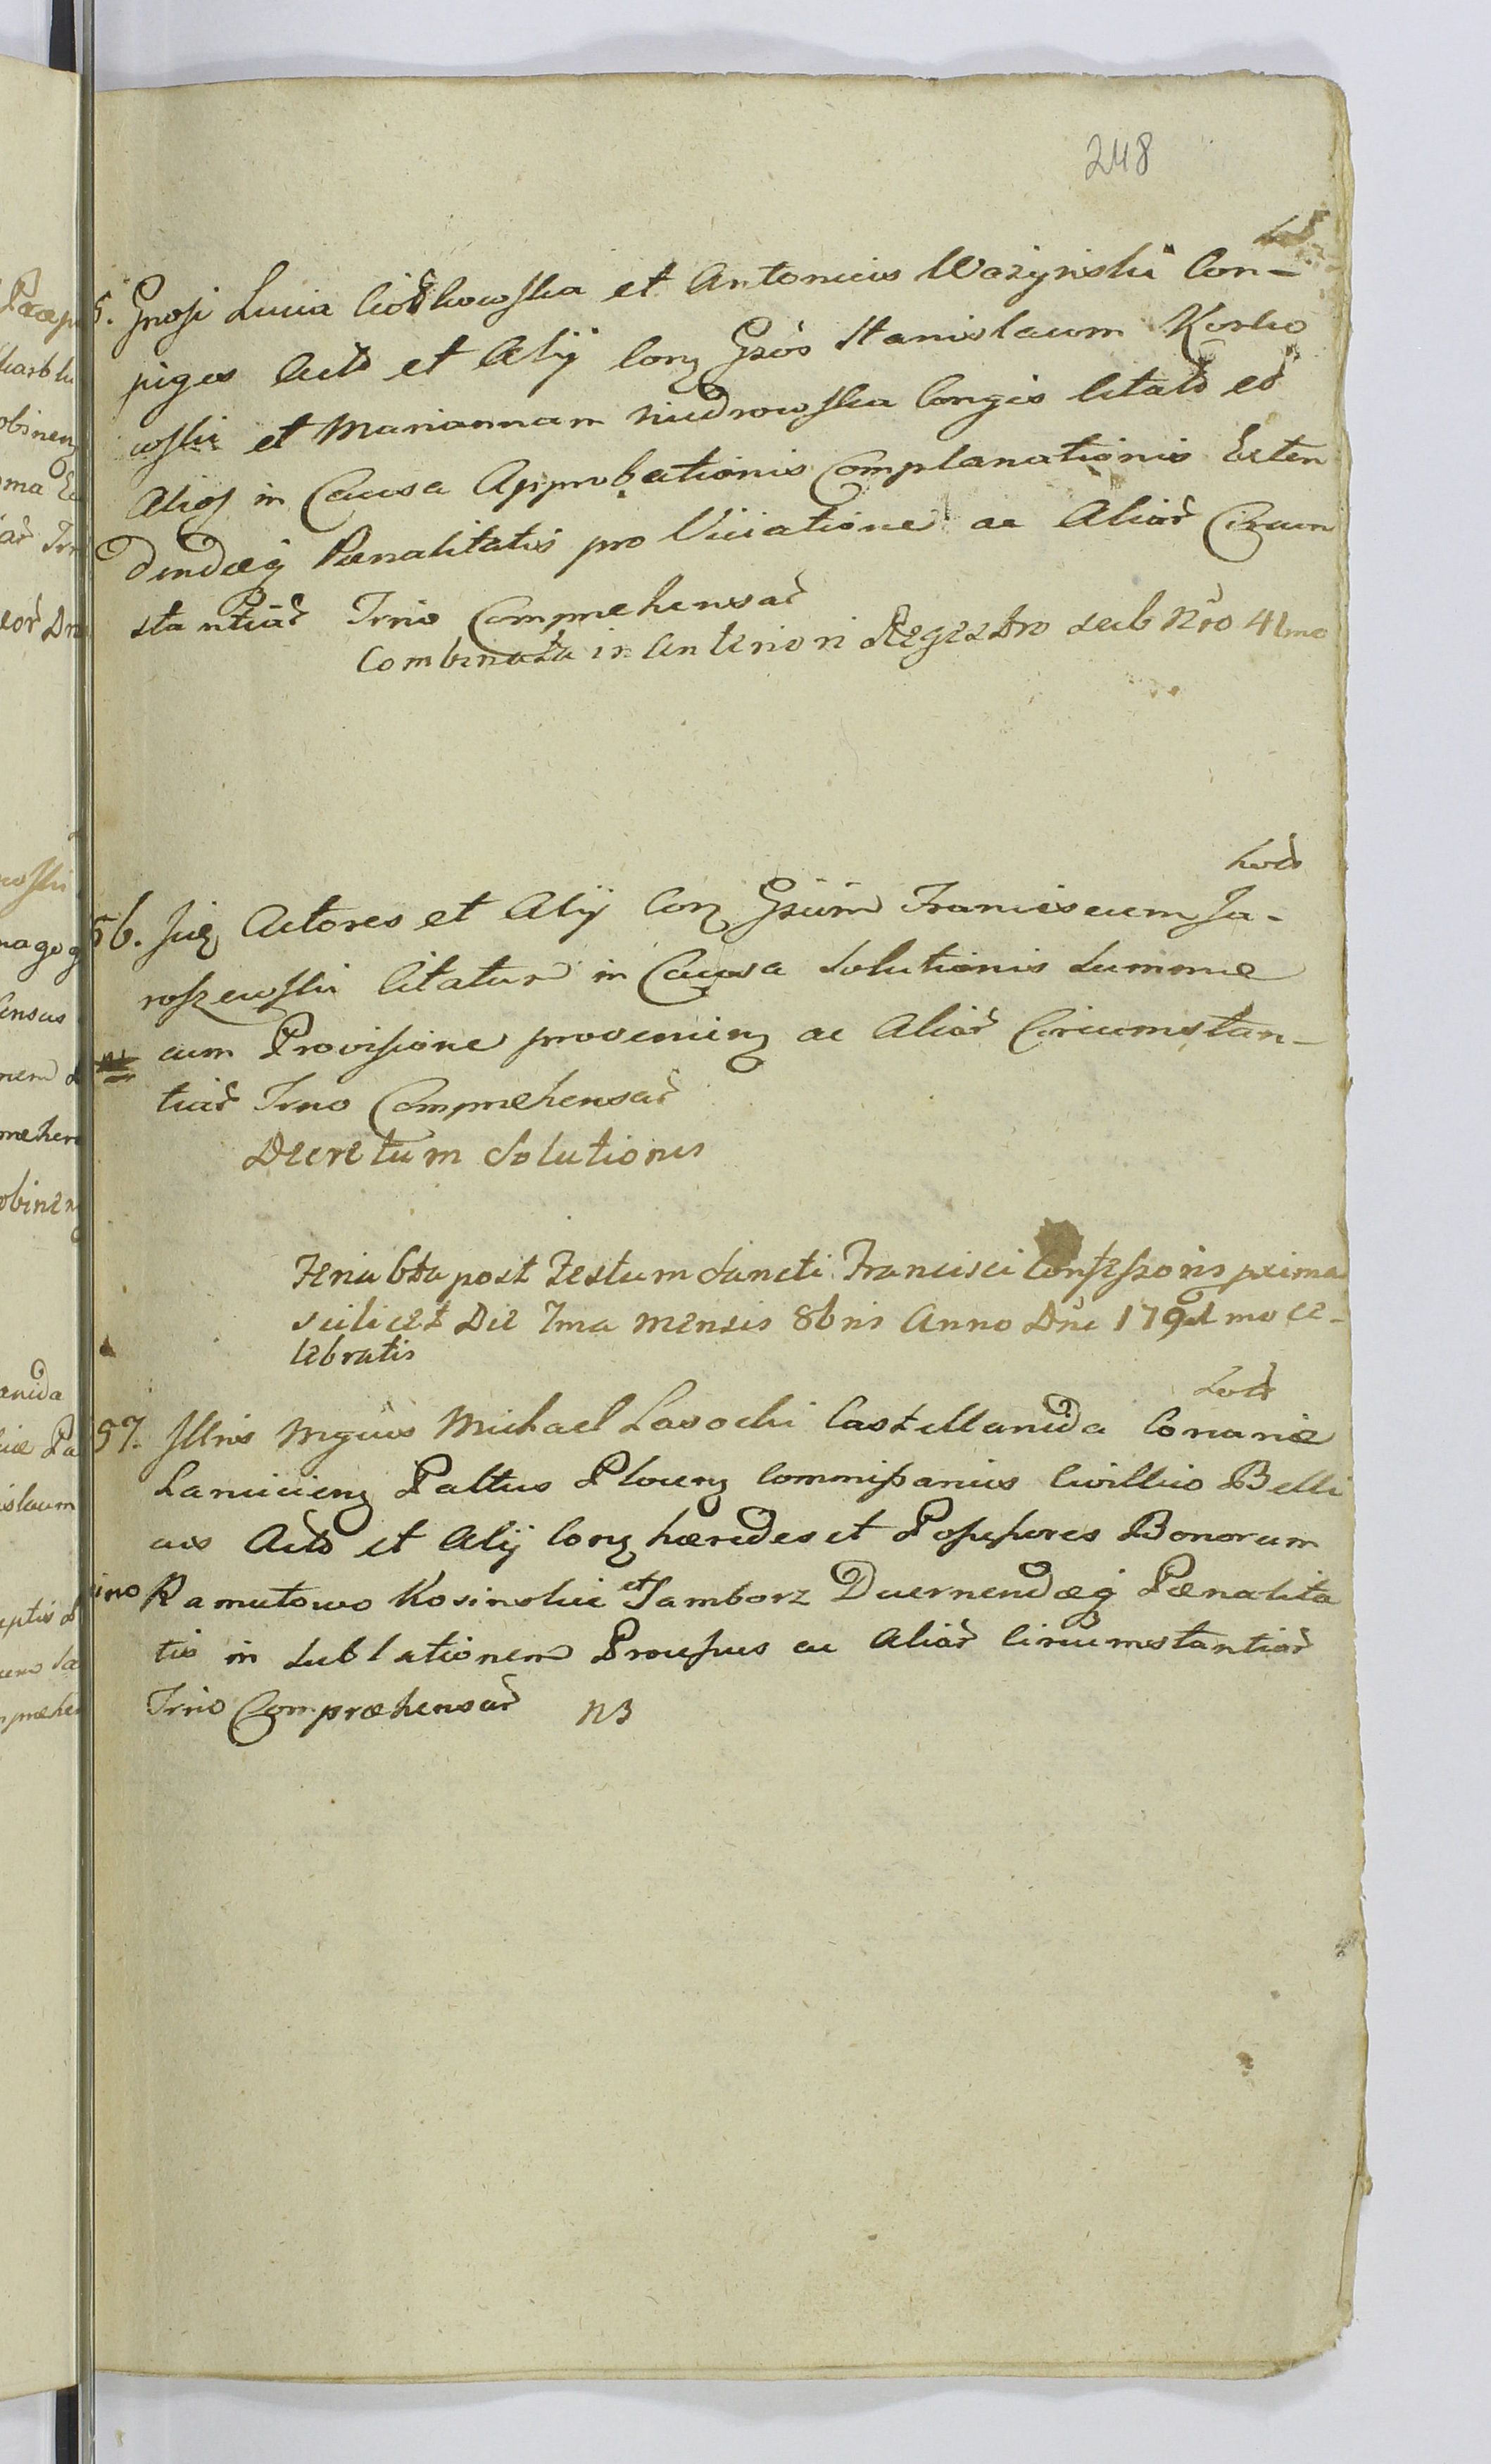 248
5. Gnosi Lucia Ciółkowska et Antonius Wazynski Con-
juges Actō et Alij Conz Gsos Stanislaum Korko
wski et Mariannam Niedrowska Conges Citatō et
Alios in Causa Approbationis Complanationis Exten
dendæq Pænalitatis pro Viciatione ac Aliar Circum
stantiar Trno Compræhensar
Combinata in Anteriori Regestro sub Nro 41mo
Lods
56. Iidẽ Actores et Alij Conz Gsum Franciscum Ja-
roszewski Citatur in Causa Solutionis Summæ
cum Provisione provenienz ac Aliar Circumstan-
tiar Trno Compræhensar
Decretum Solutionis
Feria 6ta post Festum Sancti Francisci Confessoris prima
scilicet Die 7ma Mensis 8bris Anno Dni 1791mo ce-
lebratis
Lods
57. Illris Mgcus Michael Lasocki Castellanida Conariæ
Lanciciens Paltus Plocens Commissarius Civillio Belli
cus Actō et Alij Conz hæredes et Possessores Bonorum
Ramutowo Kosinskie et Samborz Decernendæq Pænalita
tis in Sublationem Proussus ac Aliar Circumstantiar
Trno Compræhensar NB